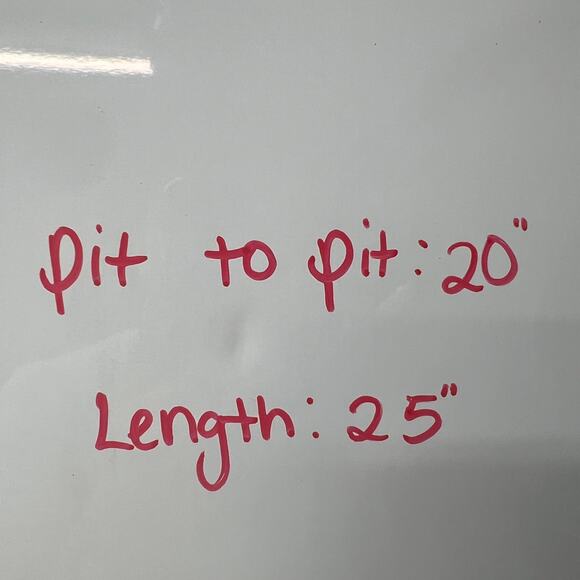 pit to pit: 20"
Length: 25"